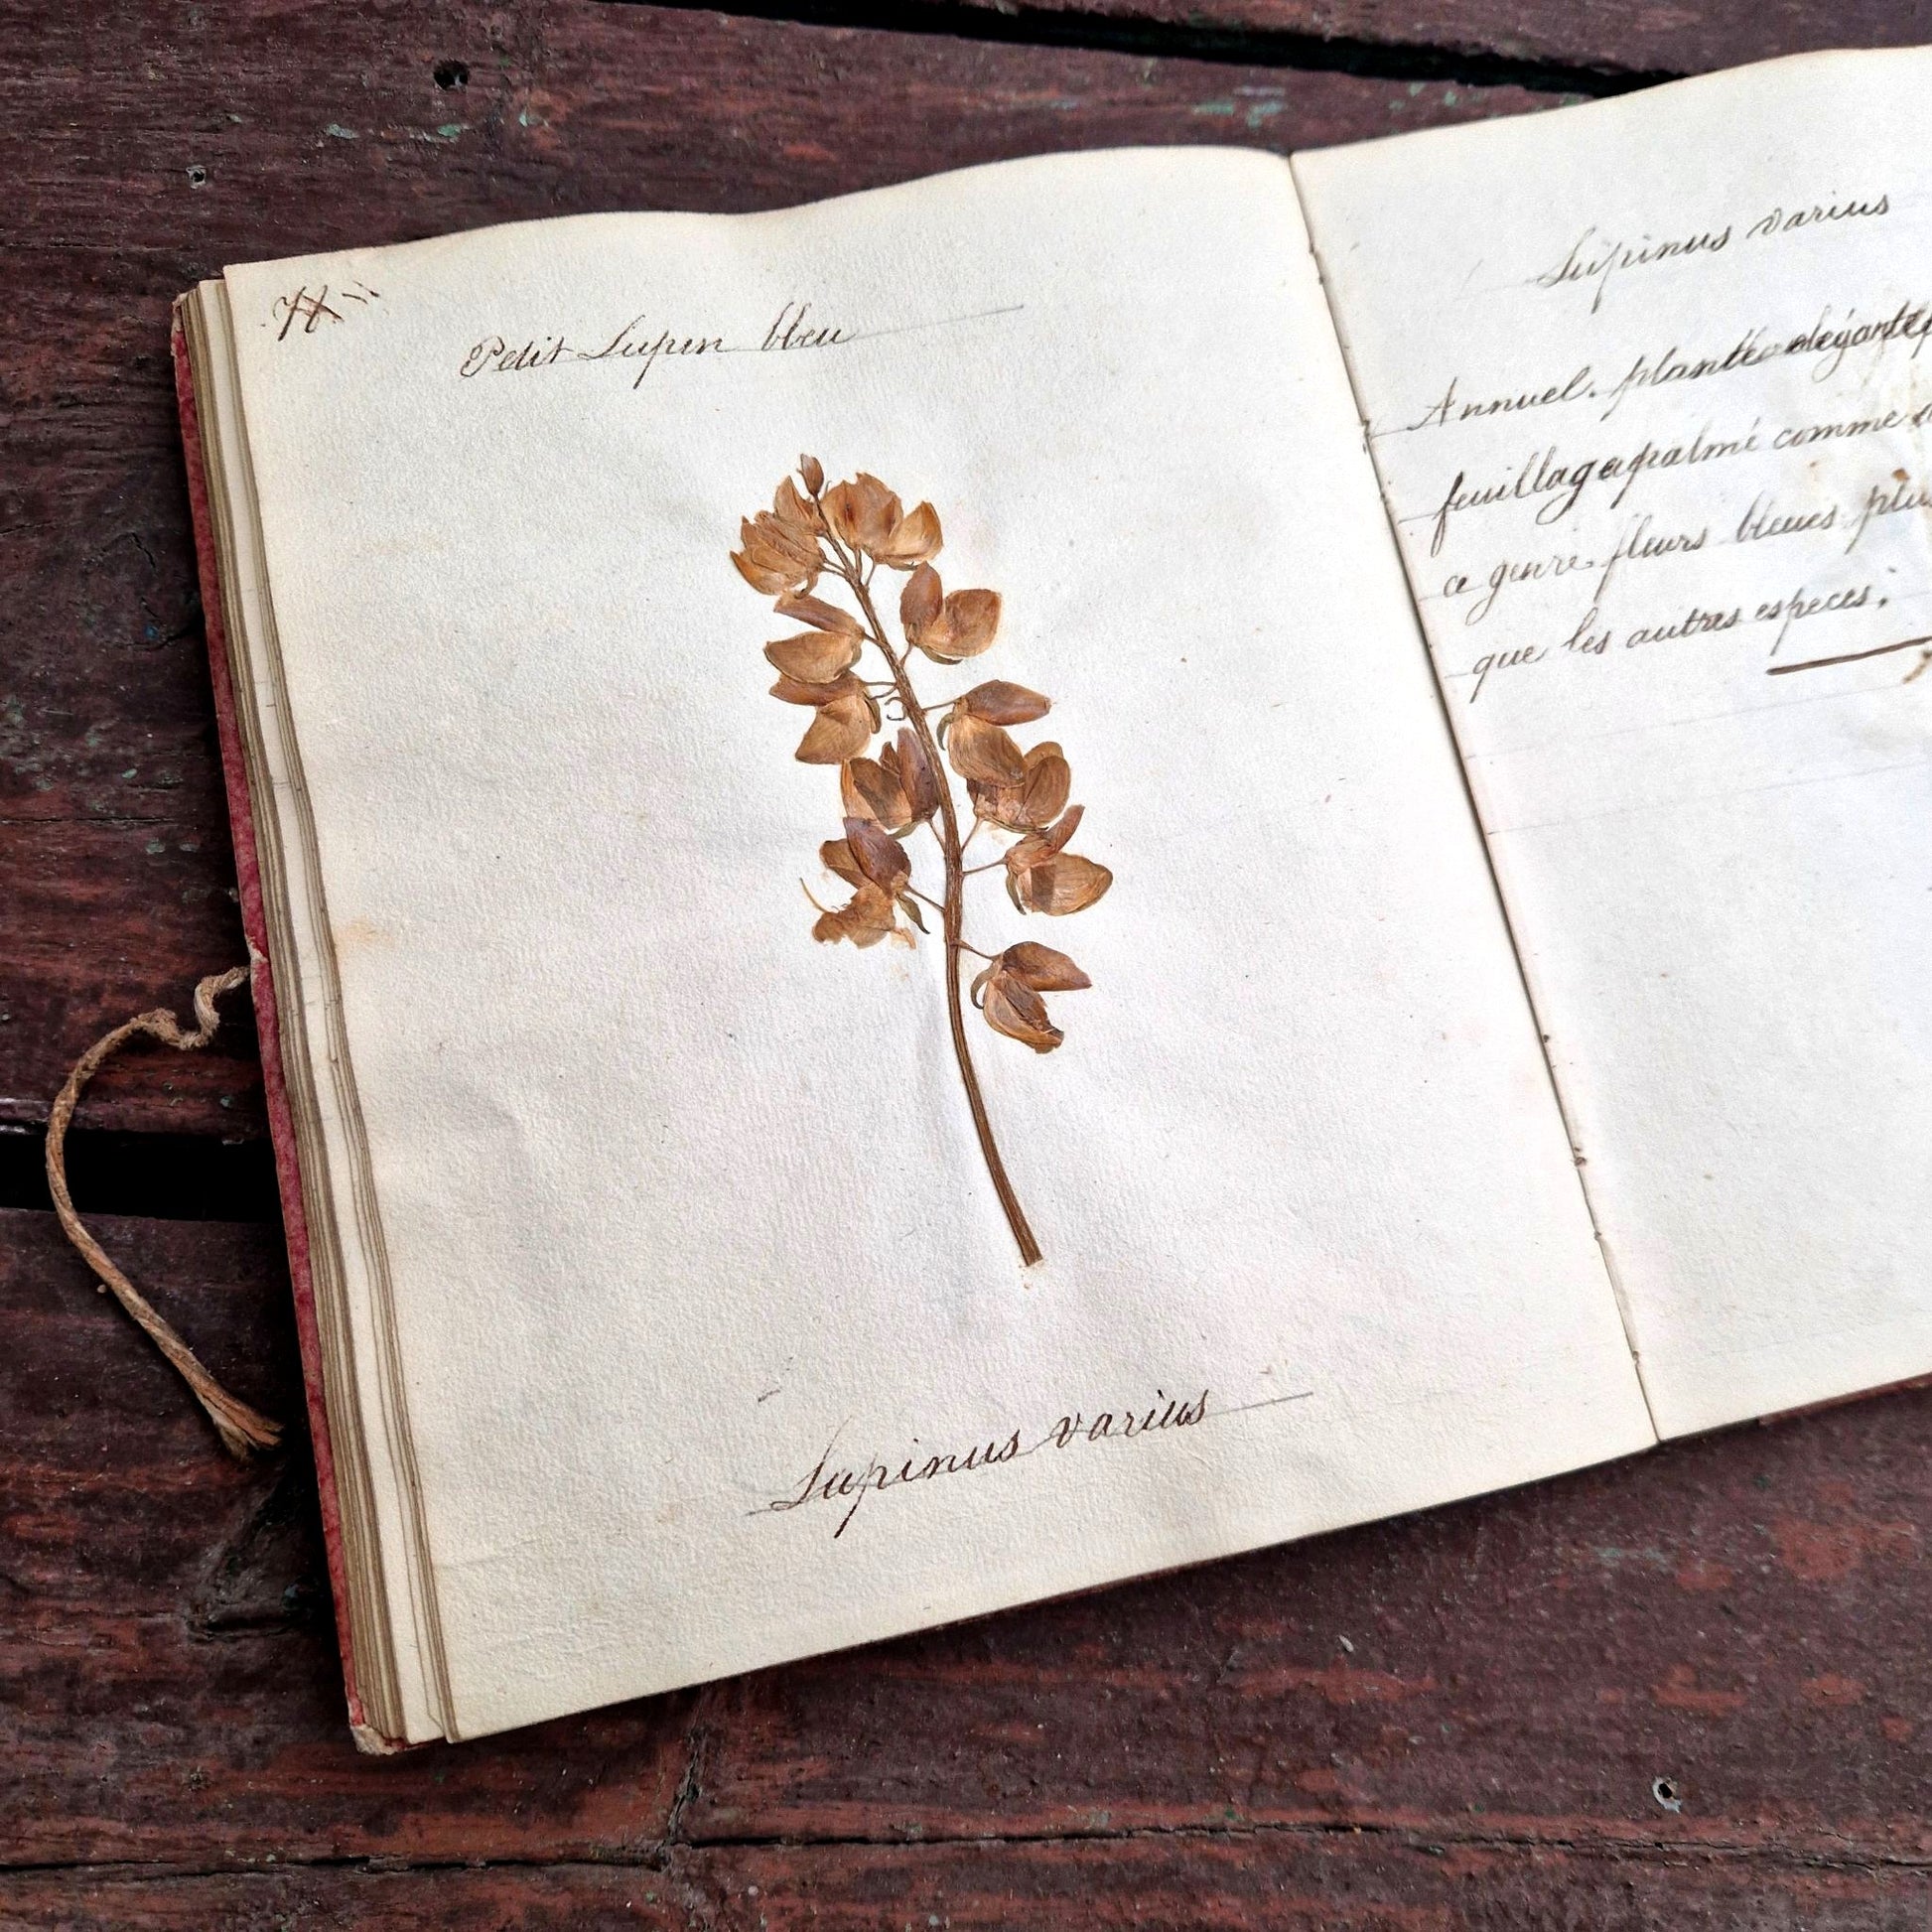 Petit Lupin bleu
Lupinus varius
Lupinus varius
Annuel. plante elégante
feuillage palmé comme
ce genre fleurs bleues
que les autres especes.